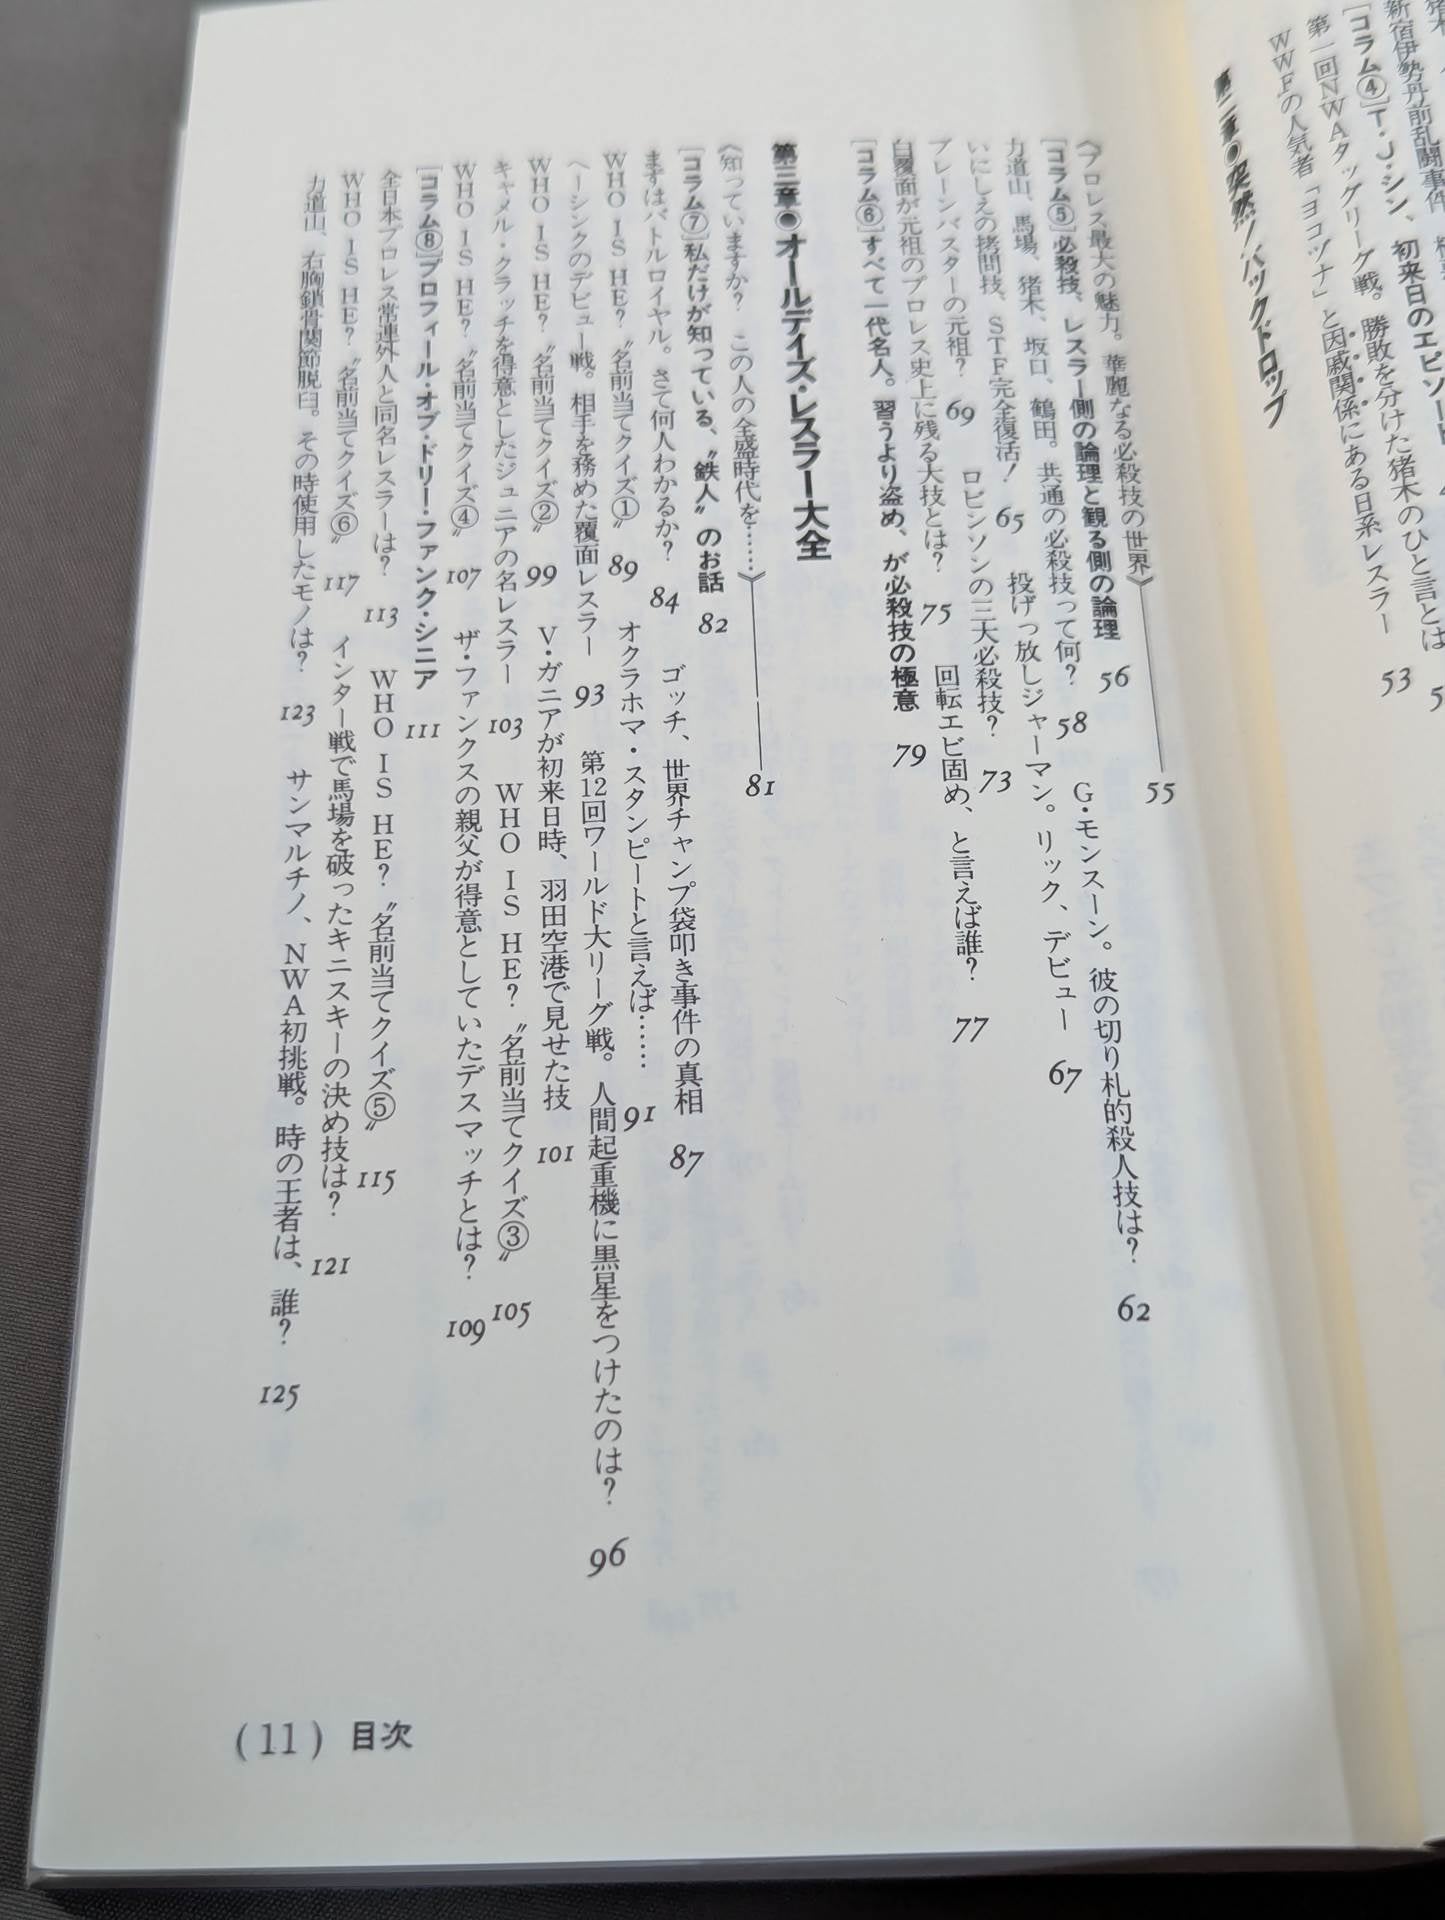 新宿伊勢丹前乱闘事件
[コラム④]T・J・シン、初来日のエピソード
第一回NWAタッグリーグ戦。勝敗を分けた猪木のひと言とは
WWFの人気者「ヨコヅナ」と因戚関係にある日系レスラー 53
第二章●突然!バックドロップ
〈プロレス最大の魅力。華麗なる必殺技の世界〉 55
[コラム⑤]必殺技、レスラー側の論理と観る側の論理 56
力道山、馬場、猪木、坂口、鶴田。共通の必殺技って何? 58 G・モンスーン。彼の切り札的殺人技は? 62
いにしえの拷問技、STF完全復活! 65 投げっ放しジャーマン。リック、デビュー 67
ブレーンバスターの元祖? 69 ロビンソンの三大必殺技? 73
白覆面が元祖のプロレス史上に残る大技とは? 75 回転エビ固め、と言えば誰? 77
[コラム⑥]すべて一代名人。習うより盗め、が必殺技の極意 79
第三章●オールデイズ・レスラー大全
〈知っていますか? この人の全盛時代を……〉 81
[コラム⑦]私だけが知っている、〝鉄人〟のお話 82
まずはバトルロイヤル。さて何人わかるか? 84 ゴッチ、世界チャンプ袋叩き事件の真相 87
WHO IS HE? 〝名前当てクイズ①〟 89 オクラホマ・スタンピートと言えば…… 91
ヘーシンクのデビュー戦。相手を務めた覆面レスラー 93 第12回ワールド大リーグ戦。人間起重機に黒星をつけたのは? 96
WHO IS HE? 〝名前当てクイズ②〟 99 V・ガニアが初来日時、羽田空港で見せた技 101
キャメル・クラッチを得意としたジュニアの名レスラー 103 WHO IS HE? 〝名前当てクイズ③〟 105
WHO IS HE? 〝名前当てクイズ④〟 107 ザ・ファンクスの親父が得意としていたデスマッチとは? 109
[コラム⑧]プロフィール・オブ・ドリー・ファンク・シニア 111
全日本プロレス常連外人と同名レスラーは? 113 WHO IS HE? 〝名前当てクイズ⑤〟 115
WHO IS HE? 〝名前当てクイズ⑥〟 117 インター戦で馬場を破ったキニスキーの決め技は? 121
力道山、右胸鎖骨関節脱臼。その時使用したモノは? 123 サンマルチノ、NWA初挑戦。時の王者は、誰? 125
(11) 目次